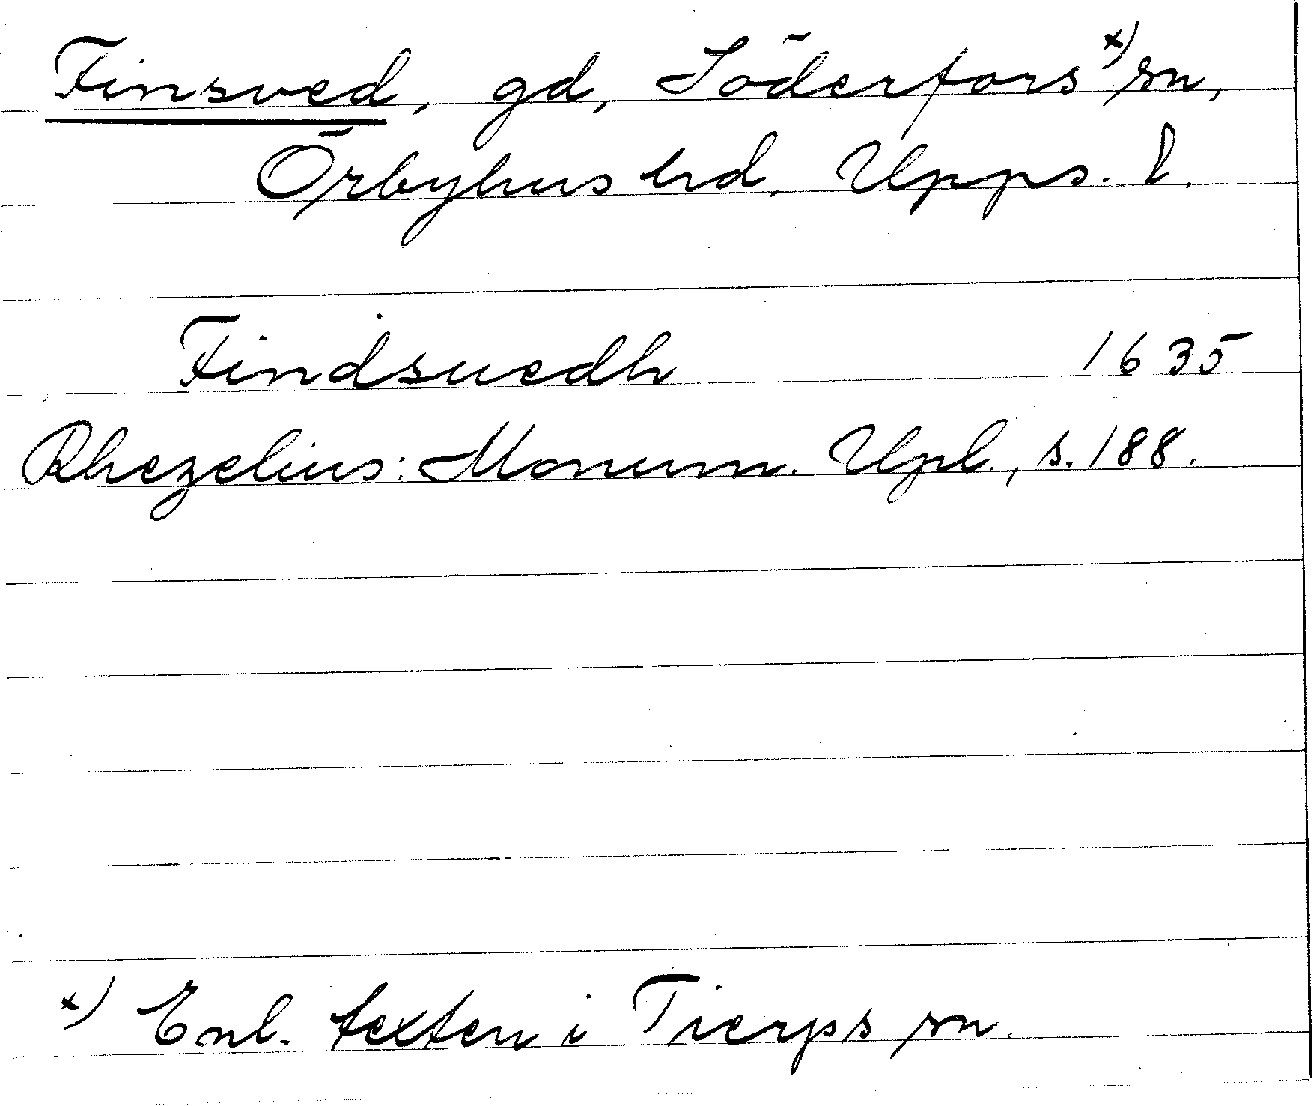 Finsved, gd, Söderfors x) sn,
Örbyhus hd, Upps. l.
Findsuedh 1635
Rhezelius: Monum. Upl., s. 188.
x) Enl. texten i Tierps sn.